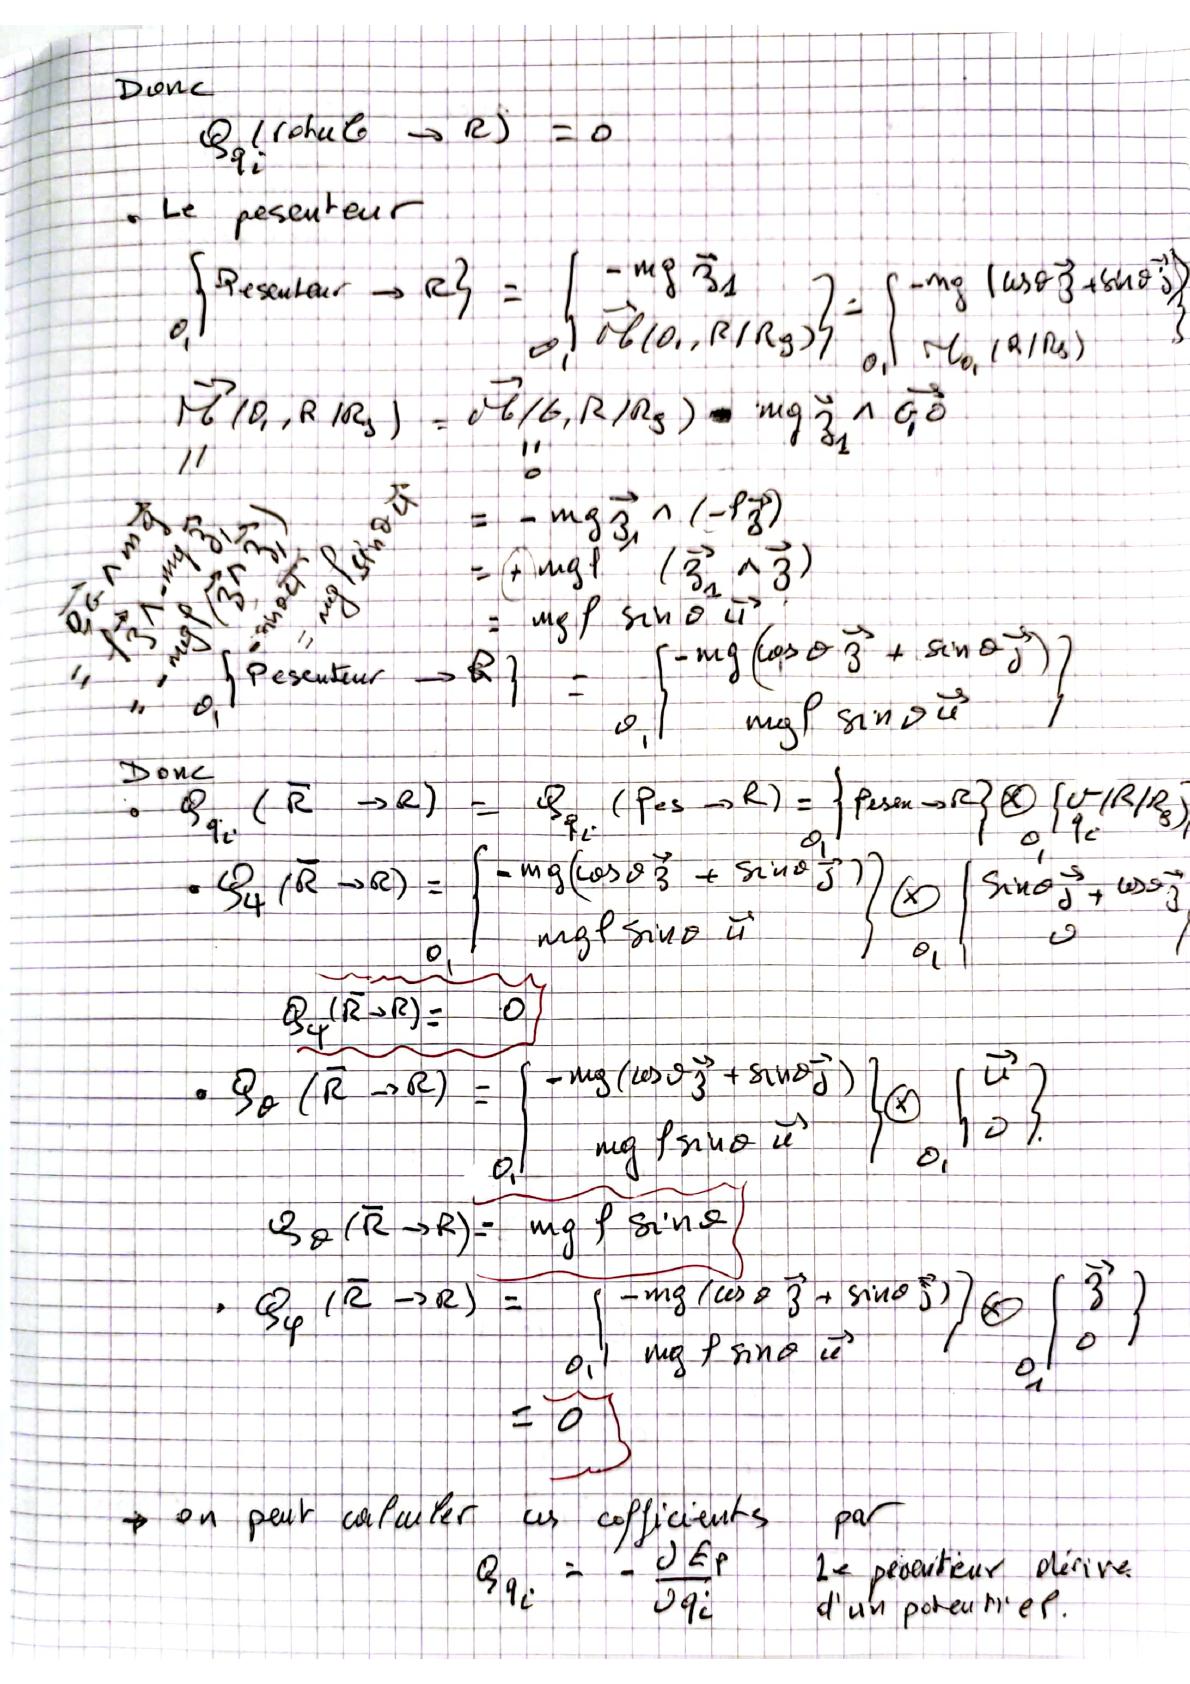 Donc
Q_{qi} (rotule → R) = 0
. Le pesenteur
_{O_1}{Pesenteur → R} = _{O_1}{ -mg \vec{z}_1 ; \vec{M}(O_1, R/Rg) } = _{O_1}{ -mg (cosθ\vec{z} + sinθ\vec{j}) ; M_{O_1} (R/Rg) }
\vec{M}(O_1, R/Rg) = \vec{M}(G, R/Rg) - mg \vec{z}_1 ∧ \vec{O_1G}
|| || 0
= - mg \vec{z}_1 ∧ (-l\vec{z})
= + mgl (\vec{z}_1 ∧ \vec{z})
= mgl sinθ \vec{u}
\vec{O_1G} ∧ m\vec{g}
" l\vec{z} ∧ -mg \vec{z}_1
" - mgl (\vec{z} ∧ \vec{z}_1)
= mgl sinθ \vec{u}
_{O_1}{Pesenteur → R} = _{O_1}{ -mg (cosθ \vec{z} + sinθ \vec{j}) ; mgl sinθ \vec{u} }
Donc
. Q_{qi} (\bar{R} → R) = Q_{qi} (Pes → R) = _{O_1}{Pesen → R} ⊗ _{O_1}{V_{qi} (R/Rg)}
. Q_ψ (\bar{R} → R) = _{O_1}{ -mg (cosθ \vec{z} + sinθ \vec{j}) ; mgl sinθ \vec{u} } ⊗ _{O_1}{ sinθ \vec{j} + cosθ \vec{z} ; 0
Q_ψ (\bar{R} → R) = 0
. Q_θ (\bar{R} → R) = _{O_1}{ -mg (cosθ \vec{z} + sinθ \vec{j}) ; mgl sinθ \vec{u} } ⊗ _{O_1}{ \vec{u} ; 0 }.
Q_θ (\bar{R} → R) = mgl sinθ
. Q_φ (\bar{R} → R) = _{O_1}{ -mg (cosθ \vec{z} + sinθ \vec{j}) ; mgl sinθ \vec{u} } ⊗ _{O_1}{ \vec{z} ; 0 }
= 0
→ on peut calculer ces cofficients par
Q_{qi} = - ∂Ep/∂qi Le pesenteur dérive
d'un potentiel.